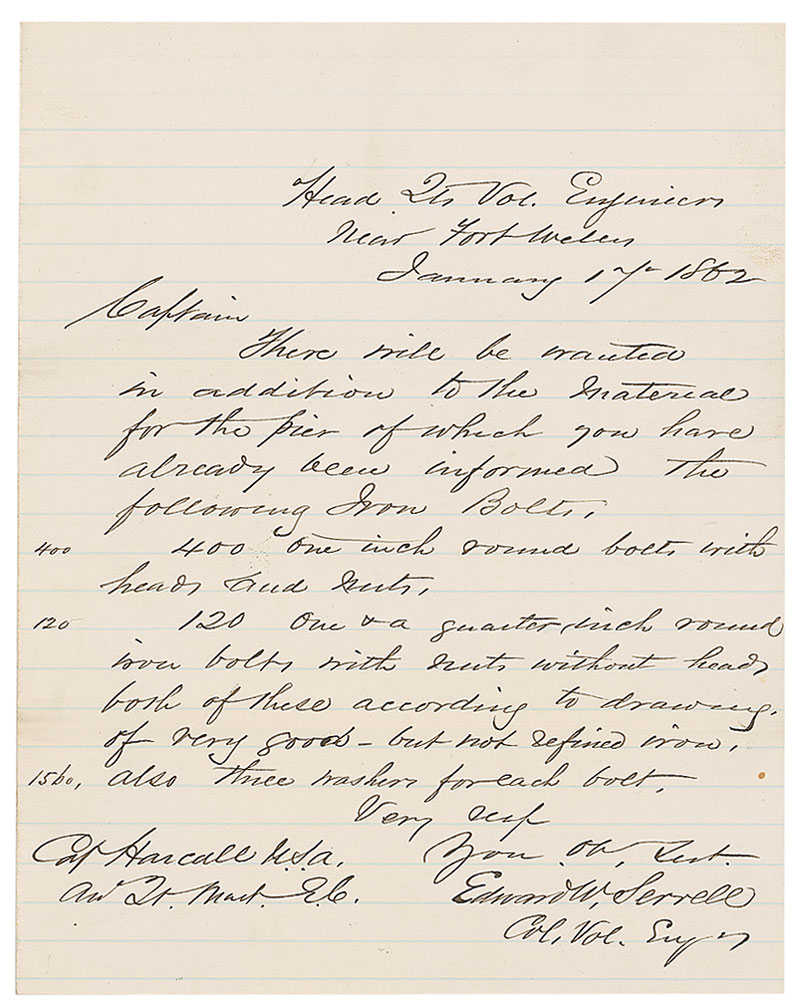 Head Qts Vol. Engineers
Near Fort Welles
January 17th 1862
Captain
There will be wanted
in addition to the Material
for the pier of which you have
already been informed the
following Iron Bolts,
400 400 one inch round bolts with
heads and nuts,
120 120 One & a quarter inch round
iron bolts with nuts without heads
both of these according to drawing,
of very good - but not refined iron,
1560, also three washers for each bolt,
Very resp
Your Ob, Sert.
Edward W, Serrell
Col, Vol. Engrs
Cap Hascall U.S.A.
Qt. Mast. E.C.